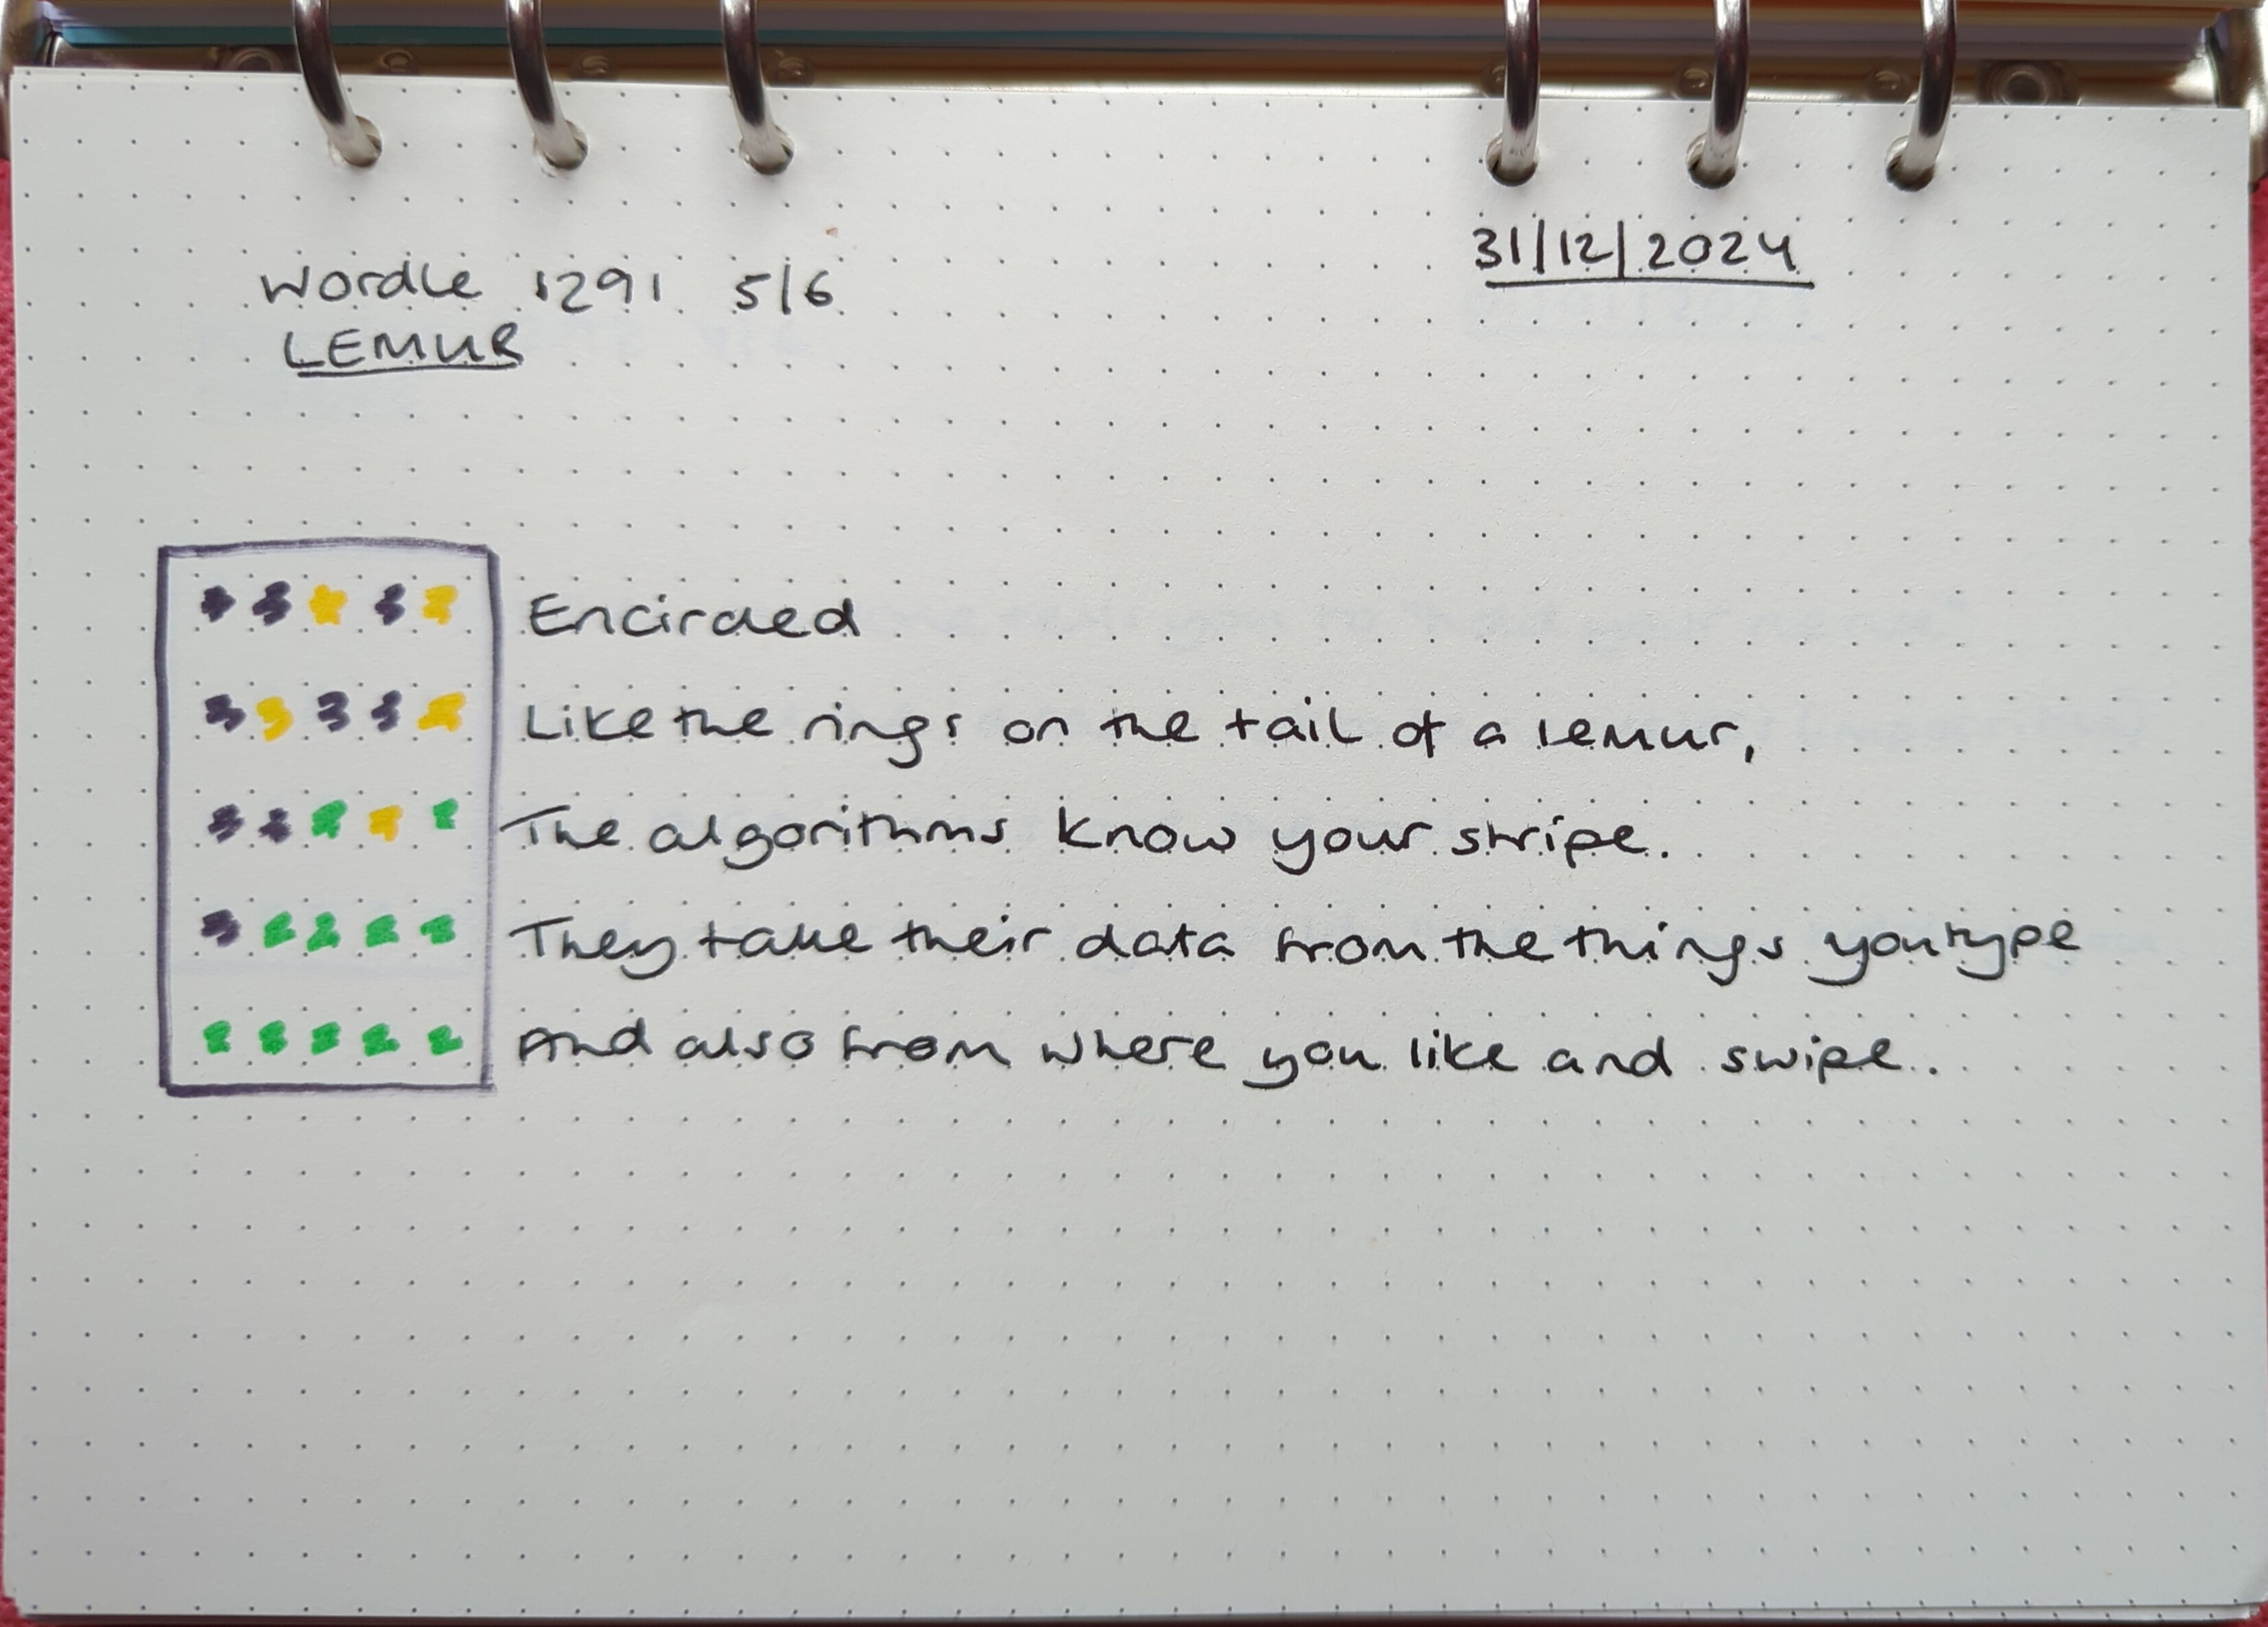 31/12/2024
Wordle 1291 5/6
LEMUR
Encircled
Like the rings on the tail of a lemur,
The algorithms know your stripe.
They take their data from the things you type
And also from where you like and swipe.